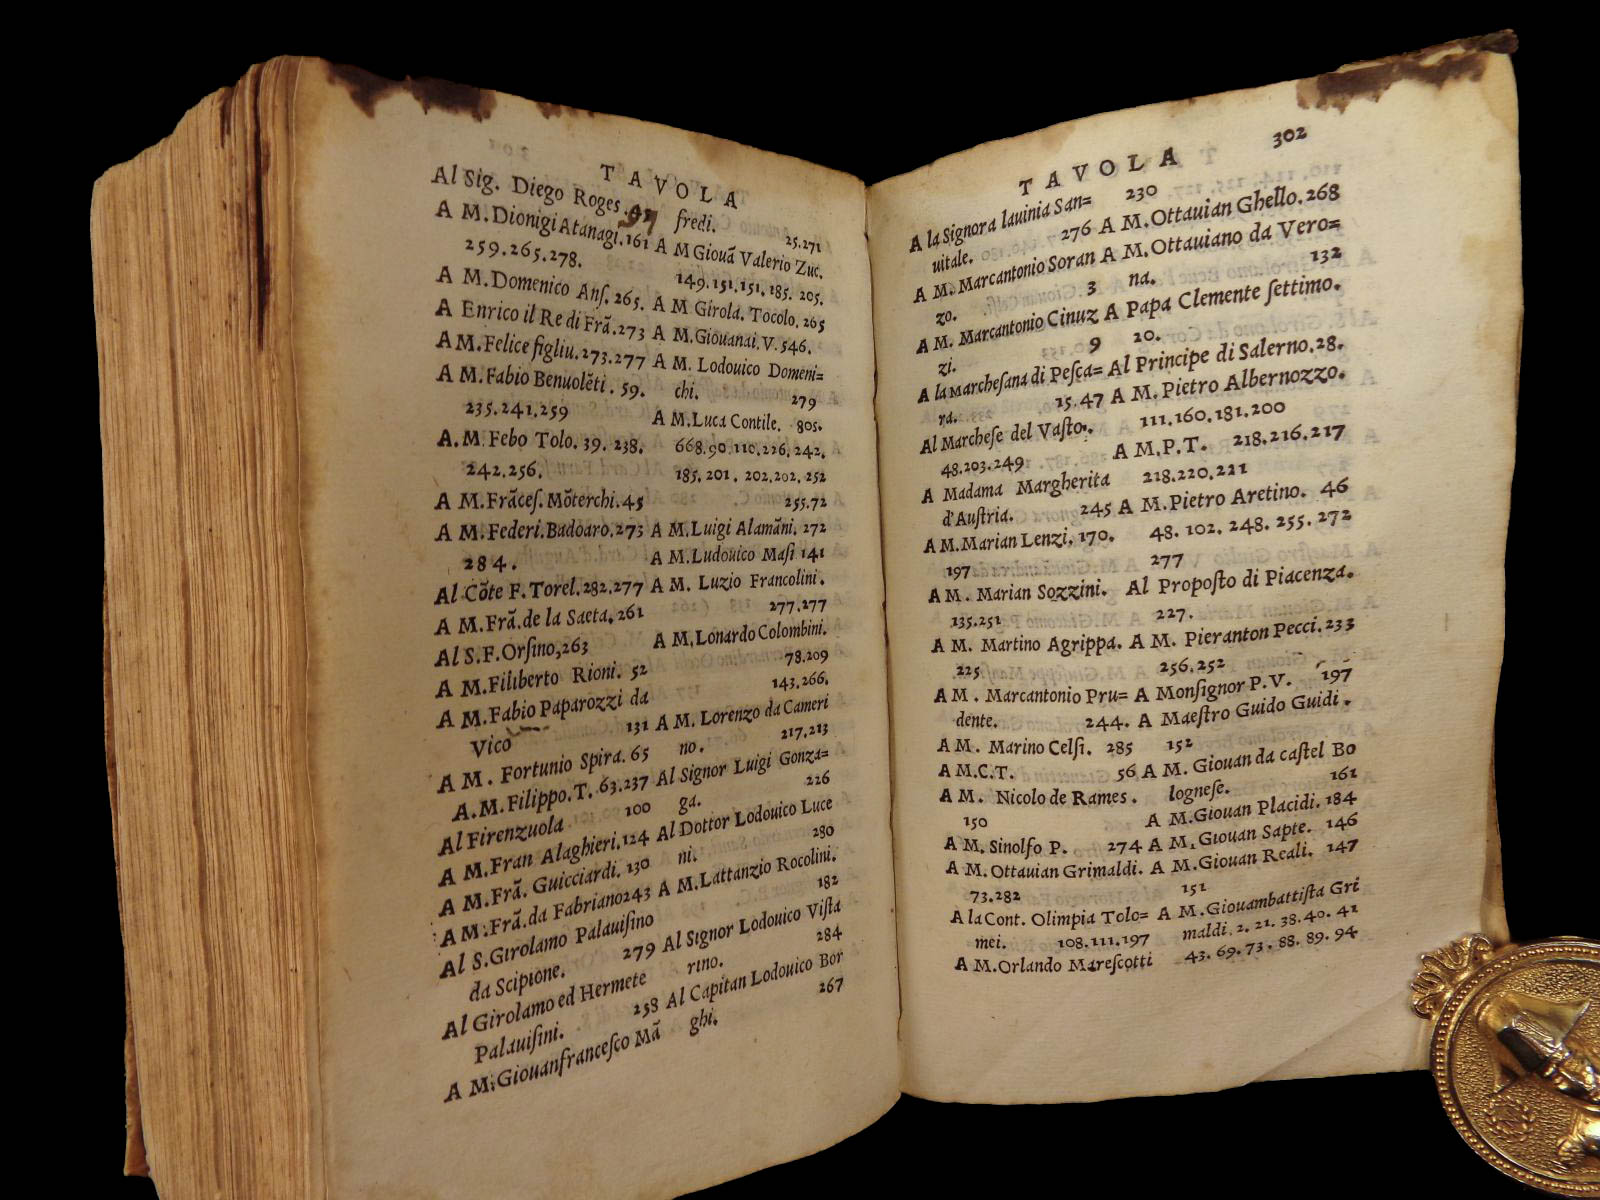 TAVOLA
Al Sig. Diego Roges.
A M.Dionigi Atanagi.161
259.265.278.
A M.Domenico Anſ. 265.
A Enrico il Re di Frã.273
A M.Felice figliu.273.277
A M.Fabio Benuolẽti . 59.
235.241.259
A.M.Febo Tolo. 39. 238.
242.256.
A M.Frãceſ. Mõterchi.45
A M.Federi.Badoaro.273
284.
Al Cõte F.Torel.282.277
A M.Frã.de la Saeta.261
Al S.F.Orſino,263
A M.Filiberto Rioni. 52
A M.Fabio Paparozzi da
Vico 131
A M. Fortunio Spira. 65
A.M.Filippo.T. 63.237
Al Firenzuola 100
A M.Fran Alaghieri.124
A M.Frã. Guicciardi. 130
A M.Frã.da Fabriano243
Al S.Girolamo Palauiſino
da Scipione. 279
Al Girolamo ed Hermete
Palauiſini. 258
A M.Giouanfranceſco Mã
fredi. 25.271
A M Giouã Valerio Zuc.
149.151.151.185. 205.
A M Girola. Tocolo. 265
A M.Giouanai.V.546.
A M. Lodouico Domeni=
chi. 279
A M.Luca Contile. 805.
668.90.110.226.242.
185.201.202.202.252
255.72
A M.Luigi Alamãni. 272
A M.Ludouico Maſi 141
A M. Luzio Francolini.
277.277
A M.Lonardo Colombini.
78.209
143.266.
A M. Lorenzo da Cameri
no. 217.213
Al Signor Luigi Gonza=
ga. 226
Al Dottor Lodouico Luce
ni. 280
A M.Lattanzio Rocolini.
182
Al Signor Lodouico Viſta
rino. 284
Al Capitan Lodouico Bor
ghi. 267
TAVOLA 302
A la Signora lauinia San=
uitale. 276
A M. Marcantonio Soran
zo. 3
A M. Marcantonio Cinuz
zi. 9
A la Marcheſana di Peſca=
ra. 15.47
Al Marcheſe del Vaſto.
48.203.249
A Madama Margherita
d'Auſtria. 245
A M.Marian Lenzi. 170.
197
A M. Marian Sozzini.
135.251
A M. Martino Agrippa.
225
A M. Marcantonio Pru=
dente. 244.
A M. Marino Celſi. 285
A M.C.T. 56
A M. Nicolo de Rames.
150
A M. Sinolfo P. 274
A M.Ottauian Grimaldi.
73.282
A la Cont. Olimpia Tolo=
mei. 108.111.197
A M.Orlando Mareſcotti
230
A M.Ottauian Ghello.268
A M.Ottauiano da Vero=
na. 132
A Papa Clemente ſettimo.
20.
Al Principe di Salerno.28.
A M. Pietro Albernozzo.
111.160.181.200
A M.P.T. 218.216.217
218.220.221
A M.Pietro Aretino. 46
48. 102. 248. 255. 272
277
Al Propoſto di Piacenza.
227.
A M. Pieranton Pecci.233
256.252
A Monſignor P.V. 197
A Maeſtro Guido Guidi.
152
A M. Giouan da caſtel Bo
logneſe. 161
A M.Giouan Placidi. 184
A M.Giouan Sapte. 146
A M.Giouan Reali. 147
151
A M.Giouambattiſta Gri
maldi. 2. 21. 38. 40. 41
43. 69. 73. 88. 89. 94